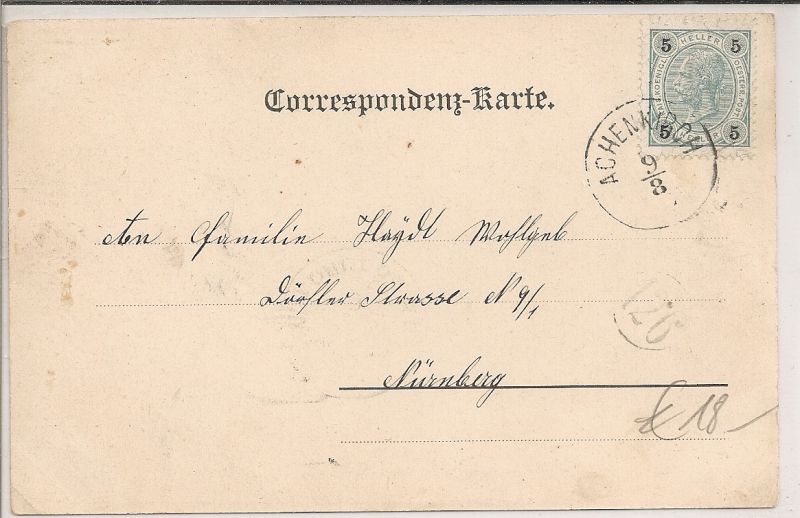 5 HELLER 5
KAIS. KOENIGL. OESTERR. POST
5 HELLER 5
Correspondenz-Karte.
ACHENKIRCH
9/8
An Familie Haydt Wohlgeb
Dörfler Strasse N 9/1
126
Nürnberg
€ 18-